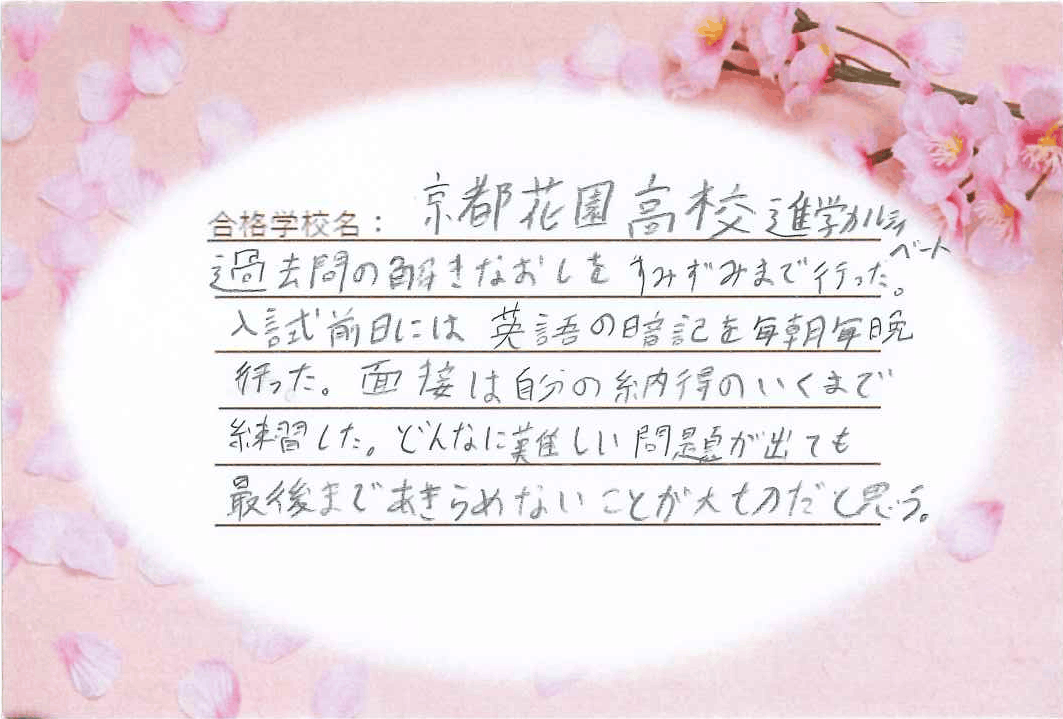 合格学校名： 京都花園高校進学カルティベート
過去問の解きなおしをすみずみまで行った。
入試前日には英語の暗記を毎朝毎晩
行った。面接は自分の納得のいくまで
練習した。どんなに難しい問題が出ても
最後まであきらめないことが大切だと思う。